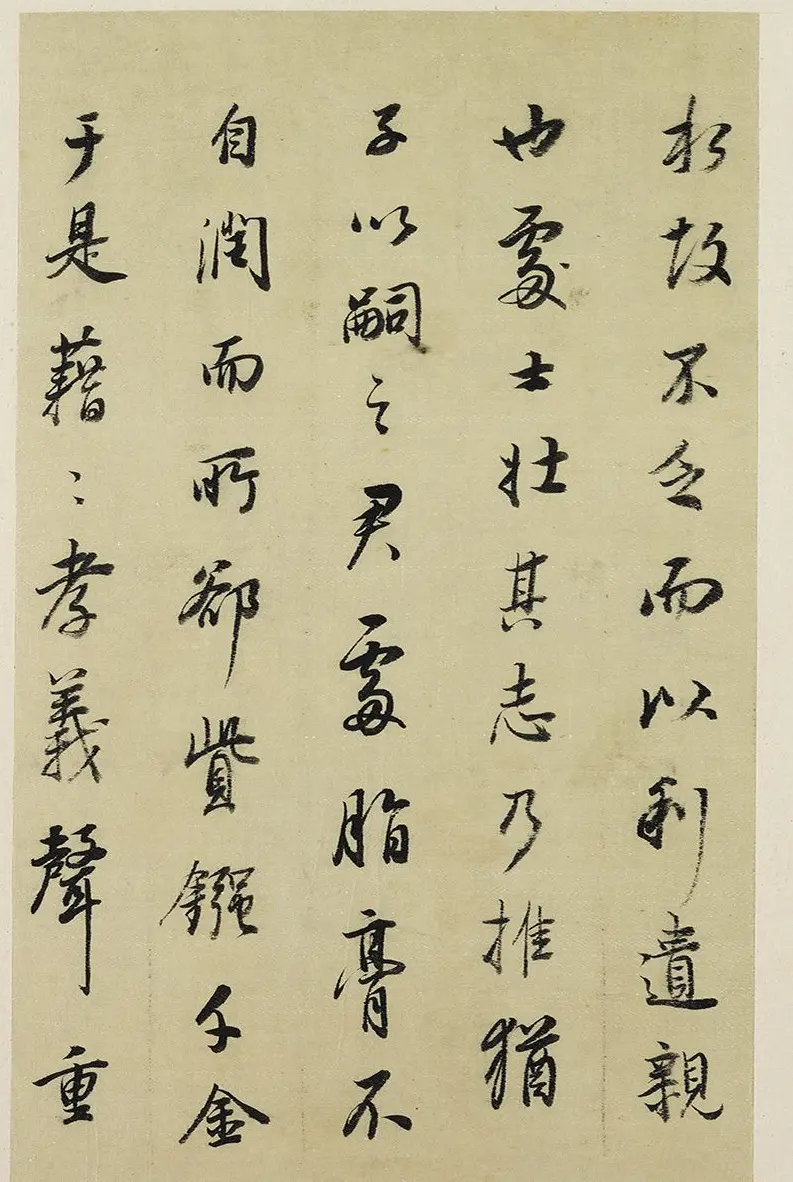 於故不乏而以利遺親
也處士壯其志乃推猶
子以嗣之君處脂膏不
自潤而所卻貲鏹千金
于是藉〻孝義聲重